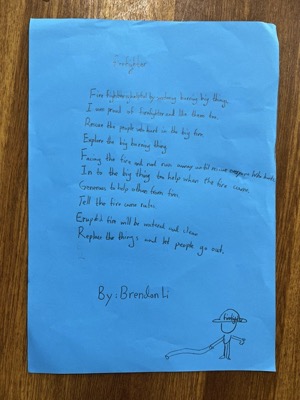 Firefighter
Fire fighter is helpful by exploring burning big things.
I was proud of firefighter and the
Rescue the people who hurt in the big fire.
Explore the big burning thing
Facing the fire and not run away until rescue
In to the big thing to help when the fire come.
Generous to help other team
Tell the fire come rules.
fire will be and clean
Replace the things and let people go out.
By: Brendan Li
firefighter